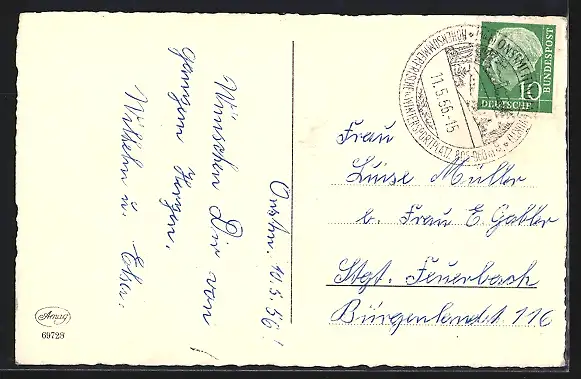 Onstm. 10.5.56!
Wünschen Dir von
ganzem Herzen,
Wilhelm u. Elsa.
Amag
69729
11.5.56.-15
10
DEUTSCHE
BUNDESPOST
Frau
Luise Müller
b. Frau E. Gabler
Stgt. Feuerbach
Burgenlandst 116